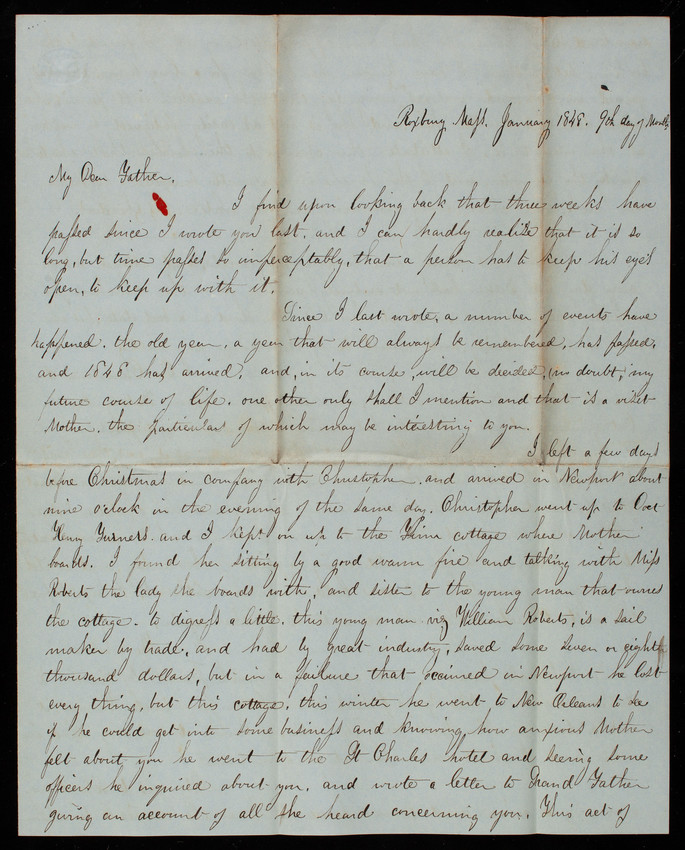 Roxbury Mass. January 1848. 9th day of Month
My Dear Father,
I find upon looking back that three weeks have
passed since I wrote you last, and I can hardly realize that it is so
long, but time passes so imperceptably, that a person has to keep his eye's
open, to keep up with it.
Since I last wrote, a number of events have
happened. the old year, a year that will always be remembered, has passed,
and 1848 has arrived, and, in its course, will be decided, no doubt, my
future course of life. one other only shall I mention and that is a visit
Mother. the particulars of which may be interesting to you.
I left a few days
before Christmas in company with Christopher. and arrived in Newport about
nine o'clock in the evening of the same day. Christopher went up to Doct
Henry Turners. and I kept on up to the cottage where Mother
boards. I found her sitting by a good warm fire and talking with Miss
Roberts the lady she boards with, and sister to the young man that owns
the cottage. to digress a little. this young man viz William Roberts, is a sail
maker by trade, and had by great industry, saved some seven or eight
thousand dollars, but in a failure that occurred in Newport he lost
every thing, but this cottage. this winter he went to New Orleans to see
if he could get into some business and knowing how anxious Mother
felt about you he went to the St Charles hotel and seeing some
officers he inquired about you. and wrote a letter to Grand Father
giving an account of all he heard concerning you. This act of